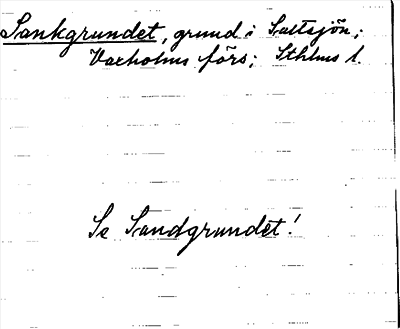 Sankgrundet, grund i Saltsjön;
Vaxholms förs; Sthlms l.
Se Sandgrundet!